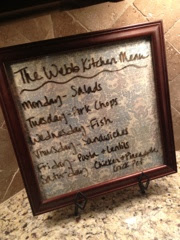 The Webb Kitchen Menu
Monday - Salads
Tuesday - Pork Chops
Wednesday - Fish
Thursday - Sandwiches
Friday - Pasta + Lentils
Saturday - Chicken +
Crock Pot